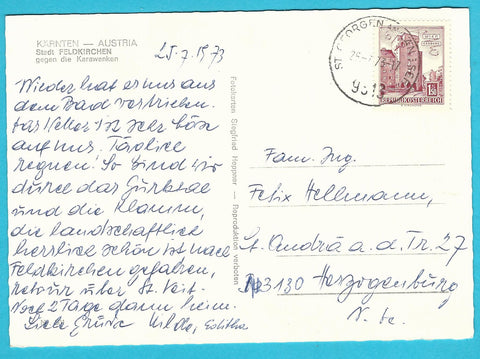 KÄRNTEN — AUSTRIA
Stadt FELDKIRCHEN
gegen die Karawanken
25.7.1973
Wieder hat es uns aus
dem Bad vertrieben.
Das Wetter ist sehr bös
auf uns. Täglich
regnen! So sind wir
durch das Gurktal
und die Klamm,
die landschaftlich
herrlich schön ist nach
Feldkirchen gefahren,
retour über St. Veit.
Noch 2 Tage dann heim.
Liebe Grüße Hilda,
Fotokarten Siegfried Hoppner — Reproduktion verboten
ST. GEORGEN AM LÄNGSEE
9313
REPUBLIK ÖSTERREICH
Fam. Ing.
Felix Hellmann,
St. Andrä a. d. Tr. 27
3130 Herzogenburg
N. Ö.